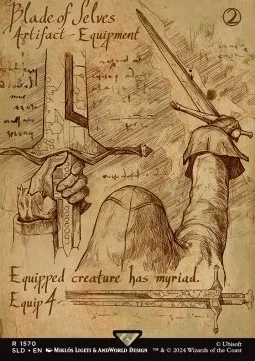 Blade of Selves
2
Artifact – Equipment
Equipped creature has myriad.
Equip 4
R 1570
SLD • EN Miklós Ligeti & AndWorld Design
© Ubisoft
™ & © 2024 Wizards of the Coast